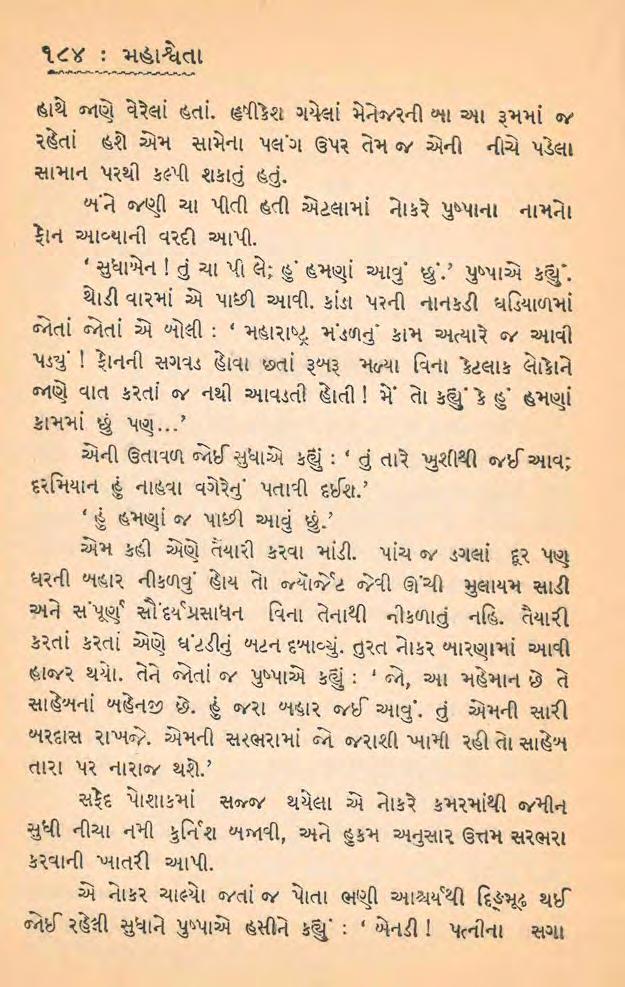 ૧૮૪ : મહાશ્વેતા
હાથે જાણે વેરેલાં હતાં. હૃષીકેશ ગયેલાં મેનેજરની બા આ રૂમમાં જ
રહેતાં હશે એમ સામેના પલંગ ઉપર તેમ જ એની નીચે પડેલા
સામાન પરથી કલ્પી શકાતું હતું.
બંને જણી ચા પીતી હતી એટલામાં નોકરે પુષ્પાના નામનો
ફોન આવ્યાની વરદી આપી.
‘ સુધાબેન ! તું ચા પી લે; હું હમણાં આવું છું.’ પુષ્પાએ કહ્યું.
થોડી વારમાં એ પાછી આવી. કાંડા પરની નાનકડી ઘડિયાળમાં
જોતાં જોતાં એ બોલી : ‘ મહારાષ્ટ્ર મંડળનું કામ અત્યારે જ આવી
પડ્યું ! ફોનની સગવડ હોવા છતાં રૂબરૂ મળ્યા વિના કેટલાક લોકોને
જાણે વાત કરતાં જ નથી આવડતી હોતી ! મેં તો કહ્યું કે હું હમણાં
કામમાં છું પણ...’
એની ઉતાવળ જોઈ સુધાએ કહ્યું : ‘ તું તારે ખુશીથી જઈ આવ;
દરમિયાન હું નાહવા વગેરેનું પતાવી દઈશ.’
‘ હું હમણાં જ પાછી આવું છું.’
એમ કહી એણે તૈયારી કરવા માંડી. પાંચ જ ડગલાં દૂર પણ
ઘરની બહાર નીકળવું હોય તો જ્યૉર્જેટ જેવી ઊંચી મુલાયમ સાડી
અને સંપૂર્ણ સૌંદર્યપ્રસાધન વિના તેનાથી નીકળાતું નહિ. તૈયારી
કરતાં કરતાં એણે ઘંટડીનું બટન દબાવ્યું. તુરત નોકર બારણામાં આવી
હાજર થયો. તેને જોતાં જ પુષ્પાએ કહ્યું : ‘ જો, આ મહેમાન છે તે
સાહેબનાં બહેનજી છે. હું જરા બહાર જઈ આવું. તું એમની સારી
બરદાસ રાખજે. એમની સરભરામાં જો જરાશી ખામી રહી તો સાહેબ
તારા પર નારાજ થશે.’
સફેદ પોશાકમાં સજ્જ થયેલા એ નોકરે કમરમાંથી જમીન
સુધી નીચા નમી કુર્નિશ બજાવી, અને હુકમ અનુસાર ઉત્તમ સરભરા
કરવાની ખાતરી આપી.
એ નોકર ચાલ્યો જતાં જ પોતા ભણી આશ્ચર્યથી દિઙ્મૂઢ થઈ
જોઈ રહેલી સુધાને પુષ્પાએ હસીને કહ્યું : ‘ બેનડી ! પત્નીના સગા